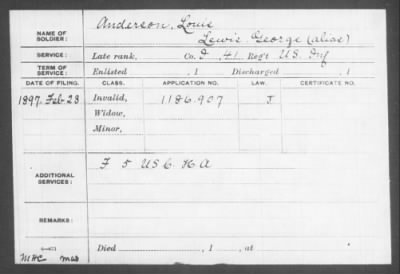 NAME OF SOLDIER: Anderson, Louis
Lewis, George (alias)
SERVICE: Late rank, Co. I, 41 Reg't U.S. Inf
TERM OF SERVICE: Enlisted , 1 Discharged , 1
DATE OF FILING. CLASS. APPLICATION NO. LAW. CERTIFICATE NO.
1897. Feb 23 Invalid, 1186.907 J
Widow,
Minor,
ADDITIONAL SERVICES: F 5 US C. H A
REMARKS:
Died , 1 , at
MHC